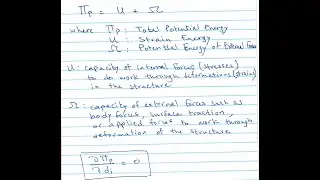 Πp = U + Ω
where Πp : Total Potential Energy
U : Strain Energy
Ω : Potential Energy of External Forces
U : capacity of internal forces (stresses)
to do work through deformations (strains)
in the structure
Ω : capacity of external forces such as
body forces, surface traction,
or applied forces to work through
deformation of the structure
∂Πp/∂di = 0